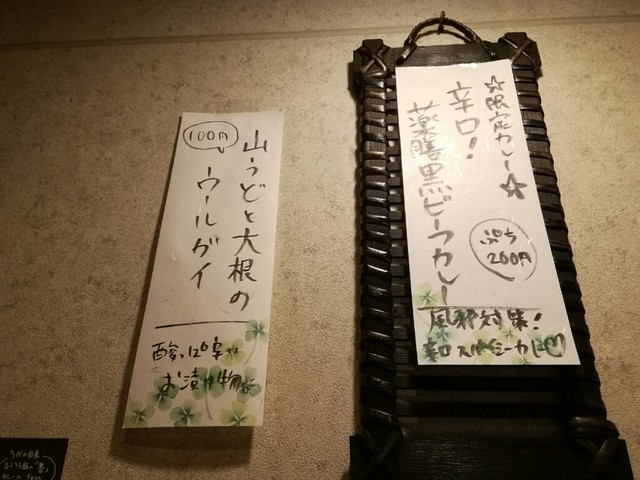 ☆限定カレー☆
辛口！
薬膳黒ビーフカレー
ぷち
200円
風邪対策！
辛口スパイシーカレー♡
山うどと大根の
ウールガイ
100円
酸っぱ辛な
お漬け物